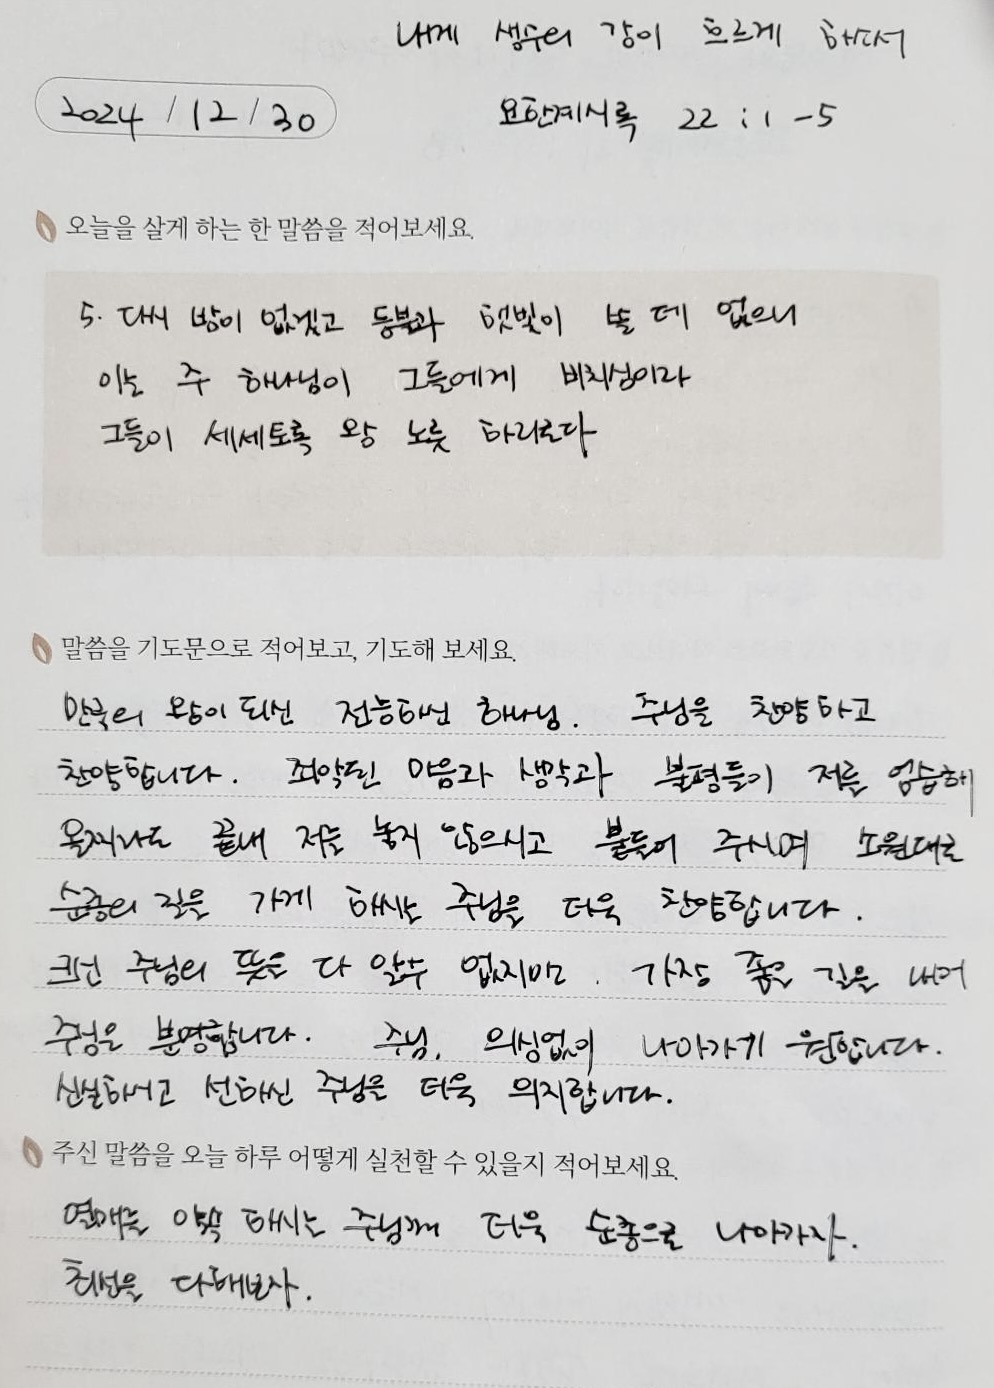 내게 생수의 강이 흐르게 하소서
2024 / 12 / 30
요한계시록 22 : 1 - 5
오늘을 살게 하는 한 말씀을 적어보세요.
5. 다시 밤이 없겠고 등불과 햇빛이 쓸 데 없으니
이는 주 하나님이 그들에게 비치심이라
그들이 세세토록 왕 노릇 하리로다
말씀을 기도문으로 적어보고, 기도해 보세요.
만국의 왕이 되신 전능하신 하나님. 주님을 찬양하고
찬양합니다. 죄악된 마음과 생각과 불평들이 저를 엄습해
올지라도 끝내 저를 놓지 않으시고 붙들어 주시며 소원대로
순종의 길을 가게 하시는 주님을 더욱 찬양합니다.
크신 주님의 뜻을 다 알수 없지만. 가장 좋은 길을 내어
주심은 분명합니다. 주님, 의심없이 나아가기 원합니다.
신실하시고 선하신 주님을 더욱 의지합니다.
주신 말씀을 오늘 하루 어떻게 실천할 수 있을지 적어보세요.
열매를 약속 하시는 주님께 더욱 순종으로 나아가자.
최선을 다해보자.